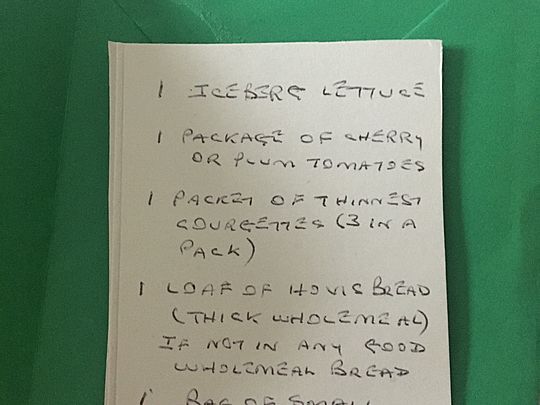 1 ICEBERG LETTUCE
1 PACKAGE OF CHERRY
OR PLUM TOMATOES
1 PACKET OF THINNEST
COURGETTES (3 IN A
PACK)
1 LOAF OF HOVIS BREAD
(THICK WHOLEMEAL)
IF NOT IN ANY GOOD
WHOLEMEAL BREAD
1 BAG OF SMALL